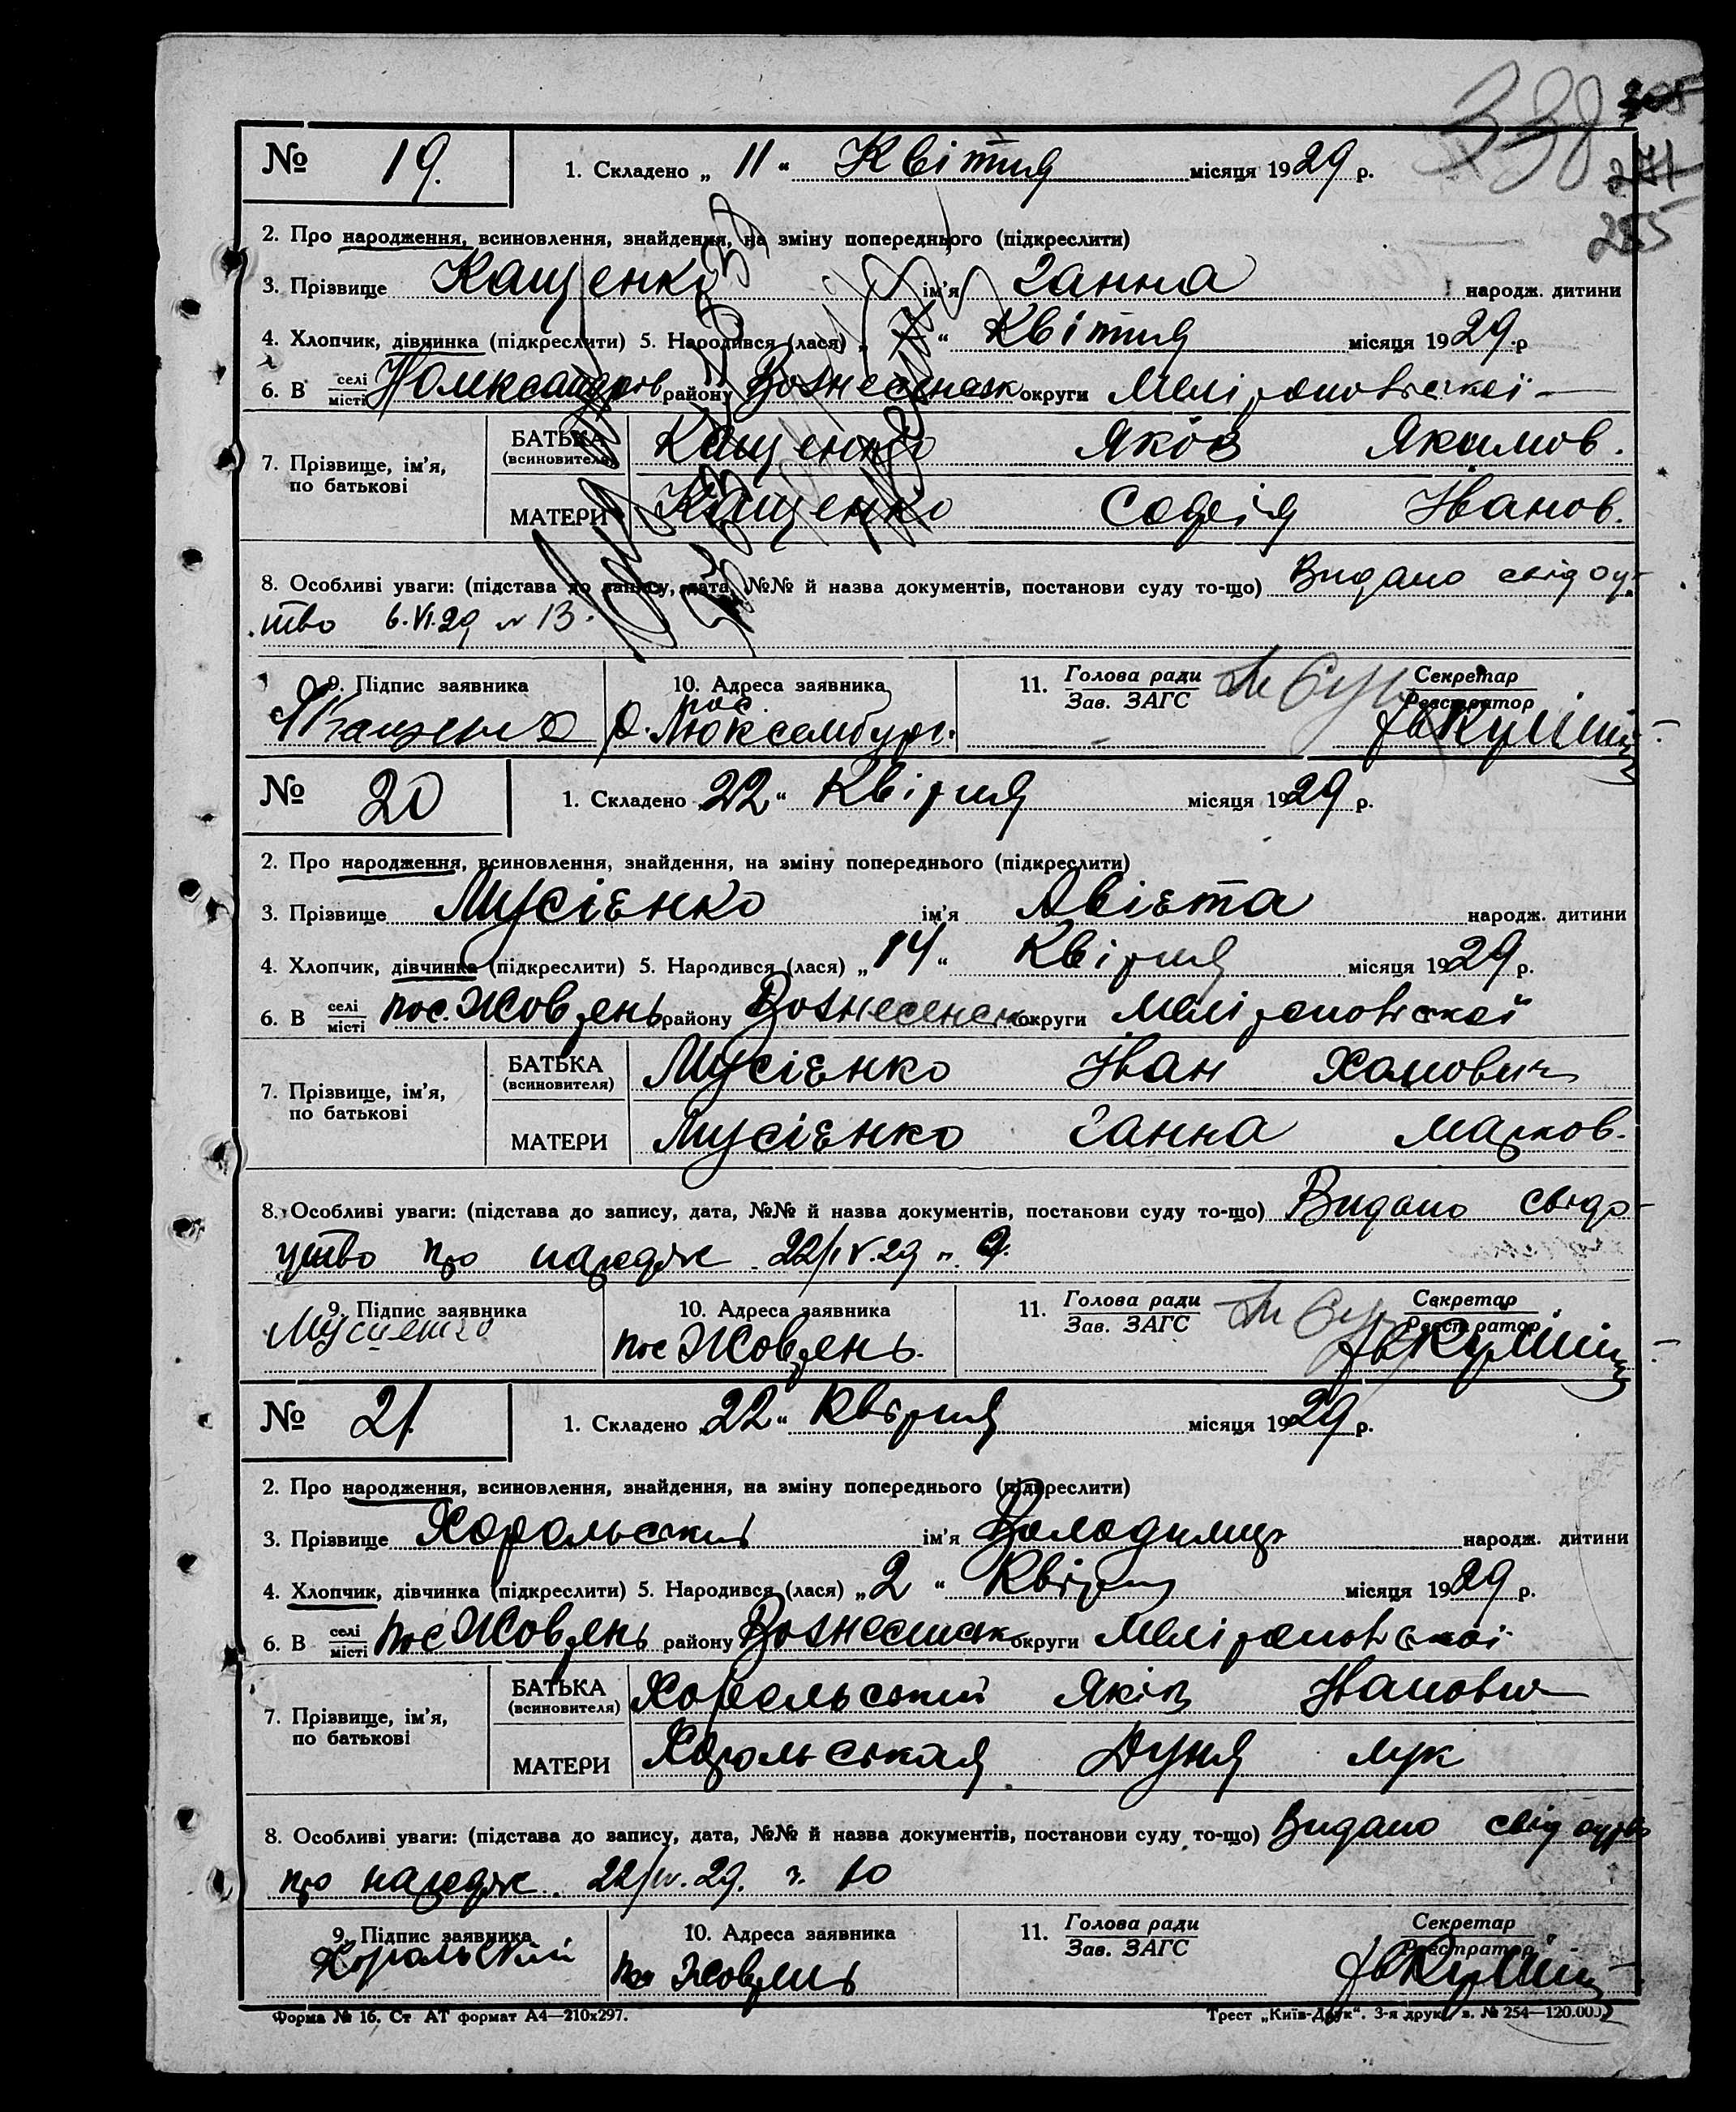 338
305
271
255
№ 19. 1. Складено „ 11 “ Квітня місяця 1929 р.
2. Про народження, всиновлення, знайдення, на зміну попереднього (підкреслити)
3. Прізвище Кащенко ім’я Ганна народж. дитини
4. Хлопчик, дівчинка (підкреслити) 5. Народився (лася) „ “ Квітня місяця 1929 р
6. В селі місті району Вознесенськ округи Мелітоповської
7. Прізвище, ім’я, по батькові
БАТЬКА (всиновителя) Кащенко Яків Якимов.
МАТЕРИ Кащенко Софія Іванов.
8. Особливі уваги: (підстава до запису, дата, №№ й назва документів, постанови суду то-що) Видано свідоу-
тво 6.VI.29 № 13.
9. Підпис заявника 10. Адреса заявника 11. Голова ради Зав. ЗАГС Секретар Реєстратор
Кащенко пос. Люксембург.
№ 20 1. Складено 22 “ Квітня місяця 1929 р.
2. Про народження, всиновлення, знайдення, на зміну попереднього (підкреслити)
3. Прізвище Мусієнко ім’я Авієта народж. дитини
4. Хлопчик, дівчинка (підкреслити) 5. Народився (лася) „ 14 “ Квітня місяця 1929 р.
6. В селі місті пос. Жовтень району Вознесенськ округи Мелітоповської
7. Прізвище, ім’я, по батькові
БАТЬКА (всиновителя) Мусієнко Іван Хомович
МАТЕРИ Мусієнко Ганна Марков.
8. Особливі уваги: (підстава до запису, дата, №№ й назва документів, постанови суду то-що) Видано свідо-
цтво про народж 22/IV.29 ч. 9.
9. Підпис заявника 10. Адреса заявника 11. Голова ради Зав. ЗАГС Секретар Реєстратор
Мусієнко пос Жовтень.
№ 21. 1. Складено „22 “ Квітня місяця 1929 р.
2. Про народження, всиновлення, знайдення, на зміну попереднього (підкреслити)
3. Прізвище Хорольський ім’я Володимир народж. дитини
4. Хлопчик, дівчинка (підкреслити) 5. Народився (лася) „ 2 “ Квітня місяця 1929 р.
6. В селі місті пос Жовтень району Вознесенськ округи Мелітоповської
7. Прізвище, ім’я, по батькові
БАТЬКА (всиновителя) Хорольський Яків Іванович
МАТЕРИ Хорольская Дуня Лук
8. Особливі уваги: (підстава до запису, дата, №№ й назва документів, постанови суду то-що) Видано свідоцтво
про народж. 22/IV.29. ч. 10
9. Підпис заявника 10. Адреса заявника 11. Голова ради Зав. ЗАГС Секретар Реєстратор
Хорольский пос Жовтень
Форма № 16. Ст АТ формат А4—210х297. Трест „Київ-Друк“. 3-я друк. з. № 254—120.000